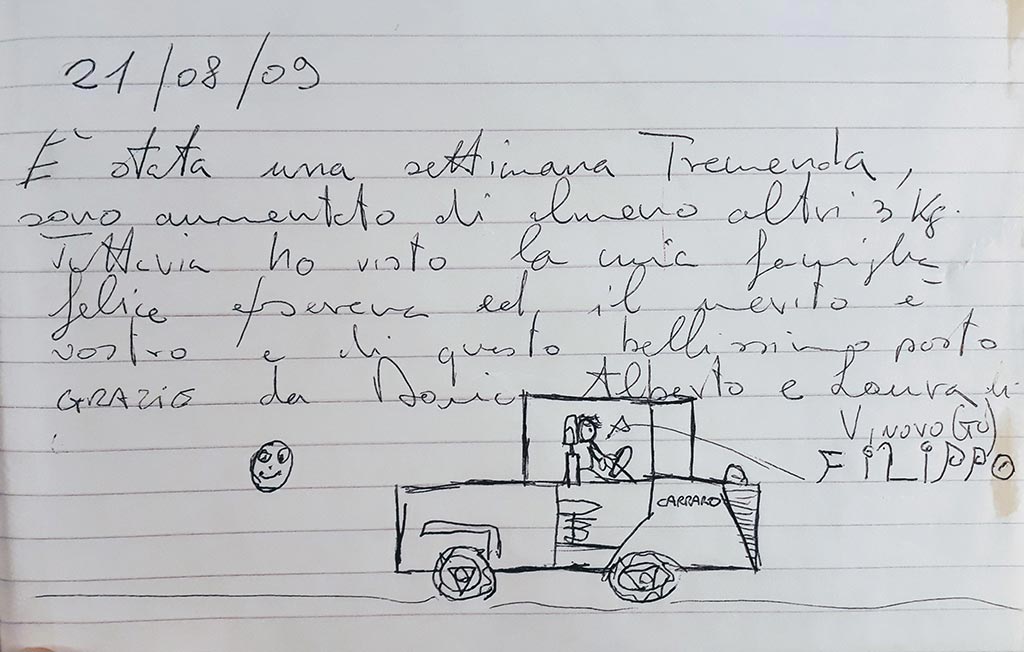 21/08/09
È stata una settimana Tremenda,
sono aumentato di almeno altri 3 Kg.
Tuttavia ho visto la mia famiglia
felice e serena ed il merito è
vostro e di questo bellissimo posto
GRAZIE da Alberto e Laura
VINOVO
FiLiPPO
CARRARO